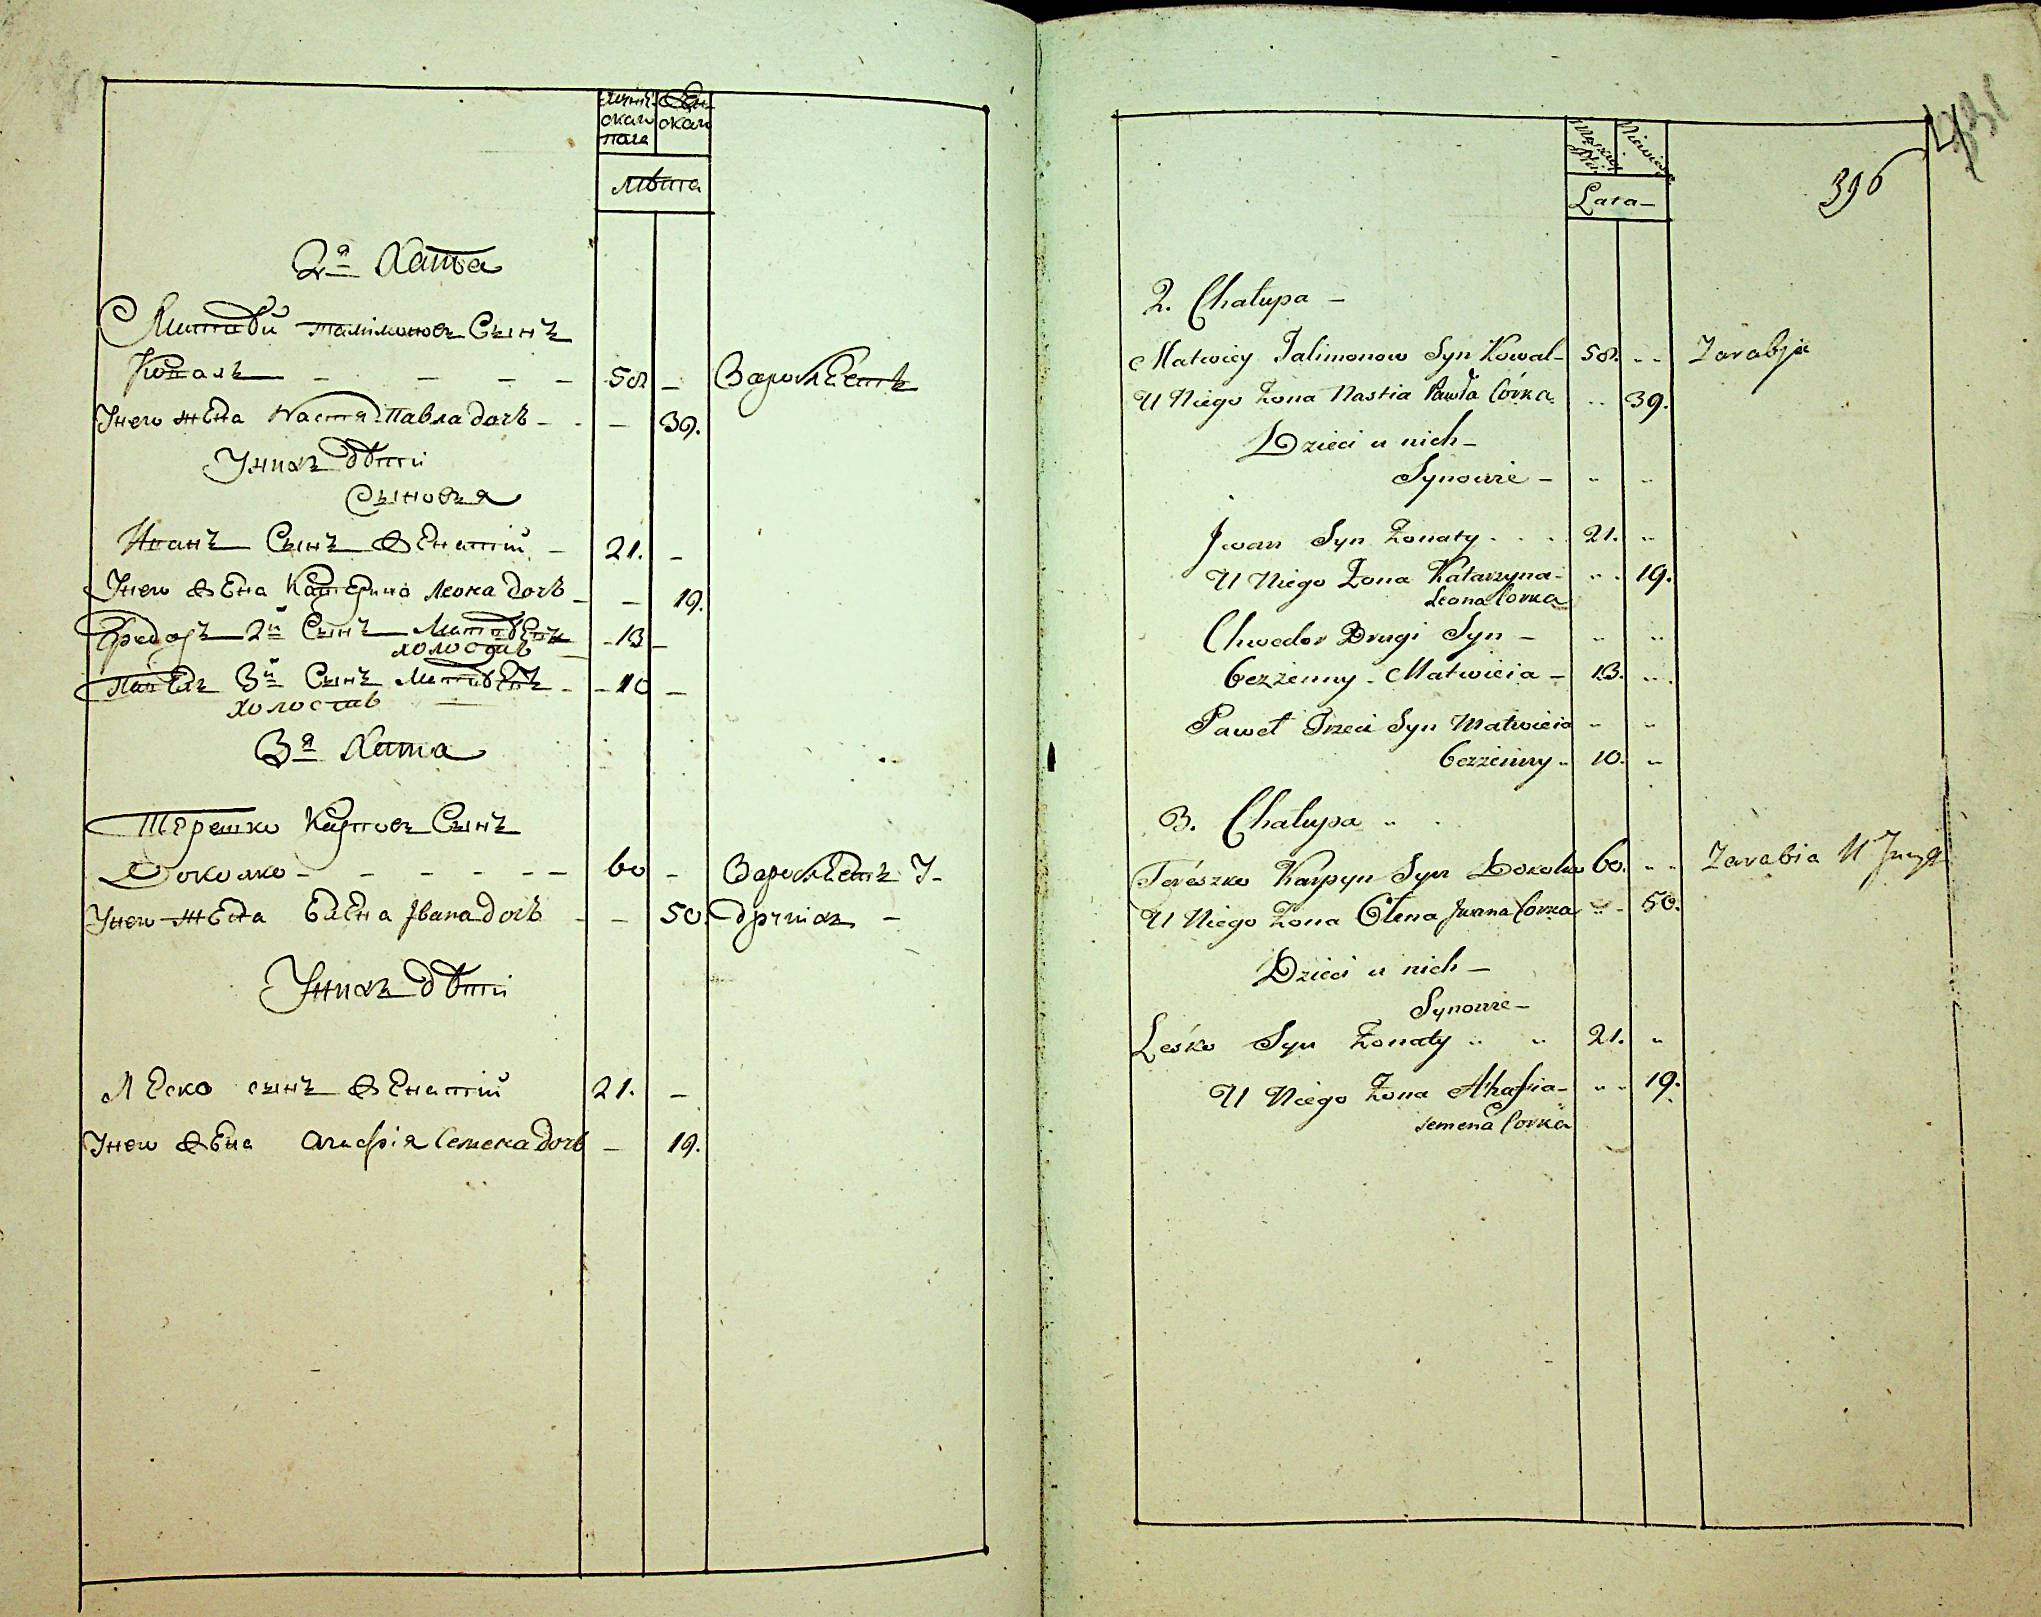 Мужескаго пола
Женскаго
Лѣта
2я Хата
Матвѣй Талімоновъ Сынъ
Коваль — — — — 58 —
Заробляетъ
У него жена Настя Павла дочь — — 39.
У нихъ дѣти
Сыновъя
Иванъ Сынъ женатій — 21. —
У него жена Катерина Леона дочь — — 19.
Федоръ 2й Сынъ Матвѣевъ — 13 —
холостій
Павелъ 3й Сынъ Матвѣевъ — 10 —
холостій
3я Хата
Терешко Карповъ Сынъ
Доколко — — — — — — 60 —
Заробляетъ У
У него жена Елена Івана дочь — — 50.
другіхъ —
У нихъ дѣти
Леско сынъ женатій 21. —
У него жена Агафія Семена дочь — 19.
431
396
Lata —
2. Chałupa —
Matwiey Talimonow Syn Kowal — 58. „ „ Zarabja
U Niego Żona Nastia Pawła Córka „ „ 39.
Dzieci u nich —
Synowie — „ „
Jwan Syn Żonaty . . . 21. „
U Niego Żona Katarzyna — „ „ 19.
Leona Corka
Chwedor Drugi Syn — „ „
bezżenny — Matwieia — 13. „
Paweł Trzeci Syn Matwieia „ „
bezżenny „ 10. „
3. Chałupa „
Tereszko Karpyn Syn Dokolko 60. „ „ Zarabia U Jnych
U Niego Żona Ołena Jwana Corka „ „ 50.
Dzieci u nich —
Synowie —
Leśko Syn Żonaty „ „ 21. „
U Niego Żona Ahafia — „ „ 19.
Semena Corka